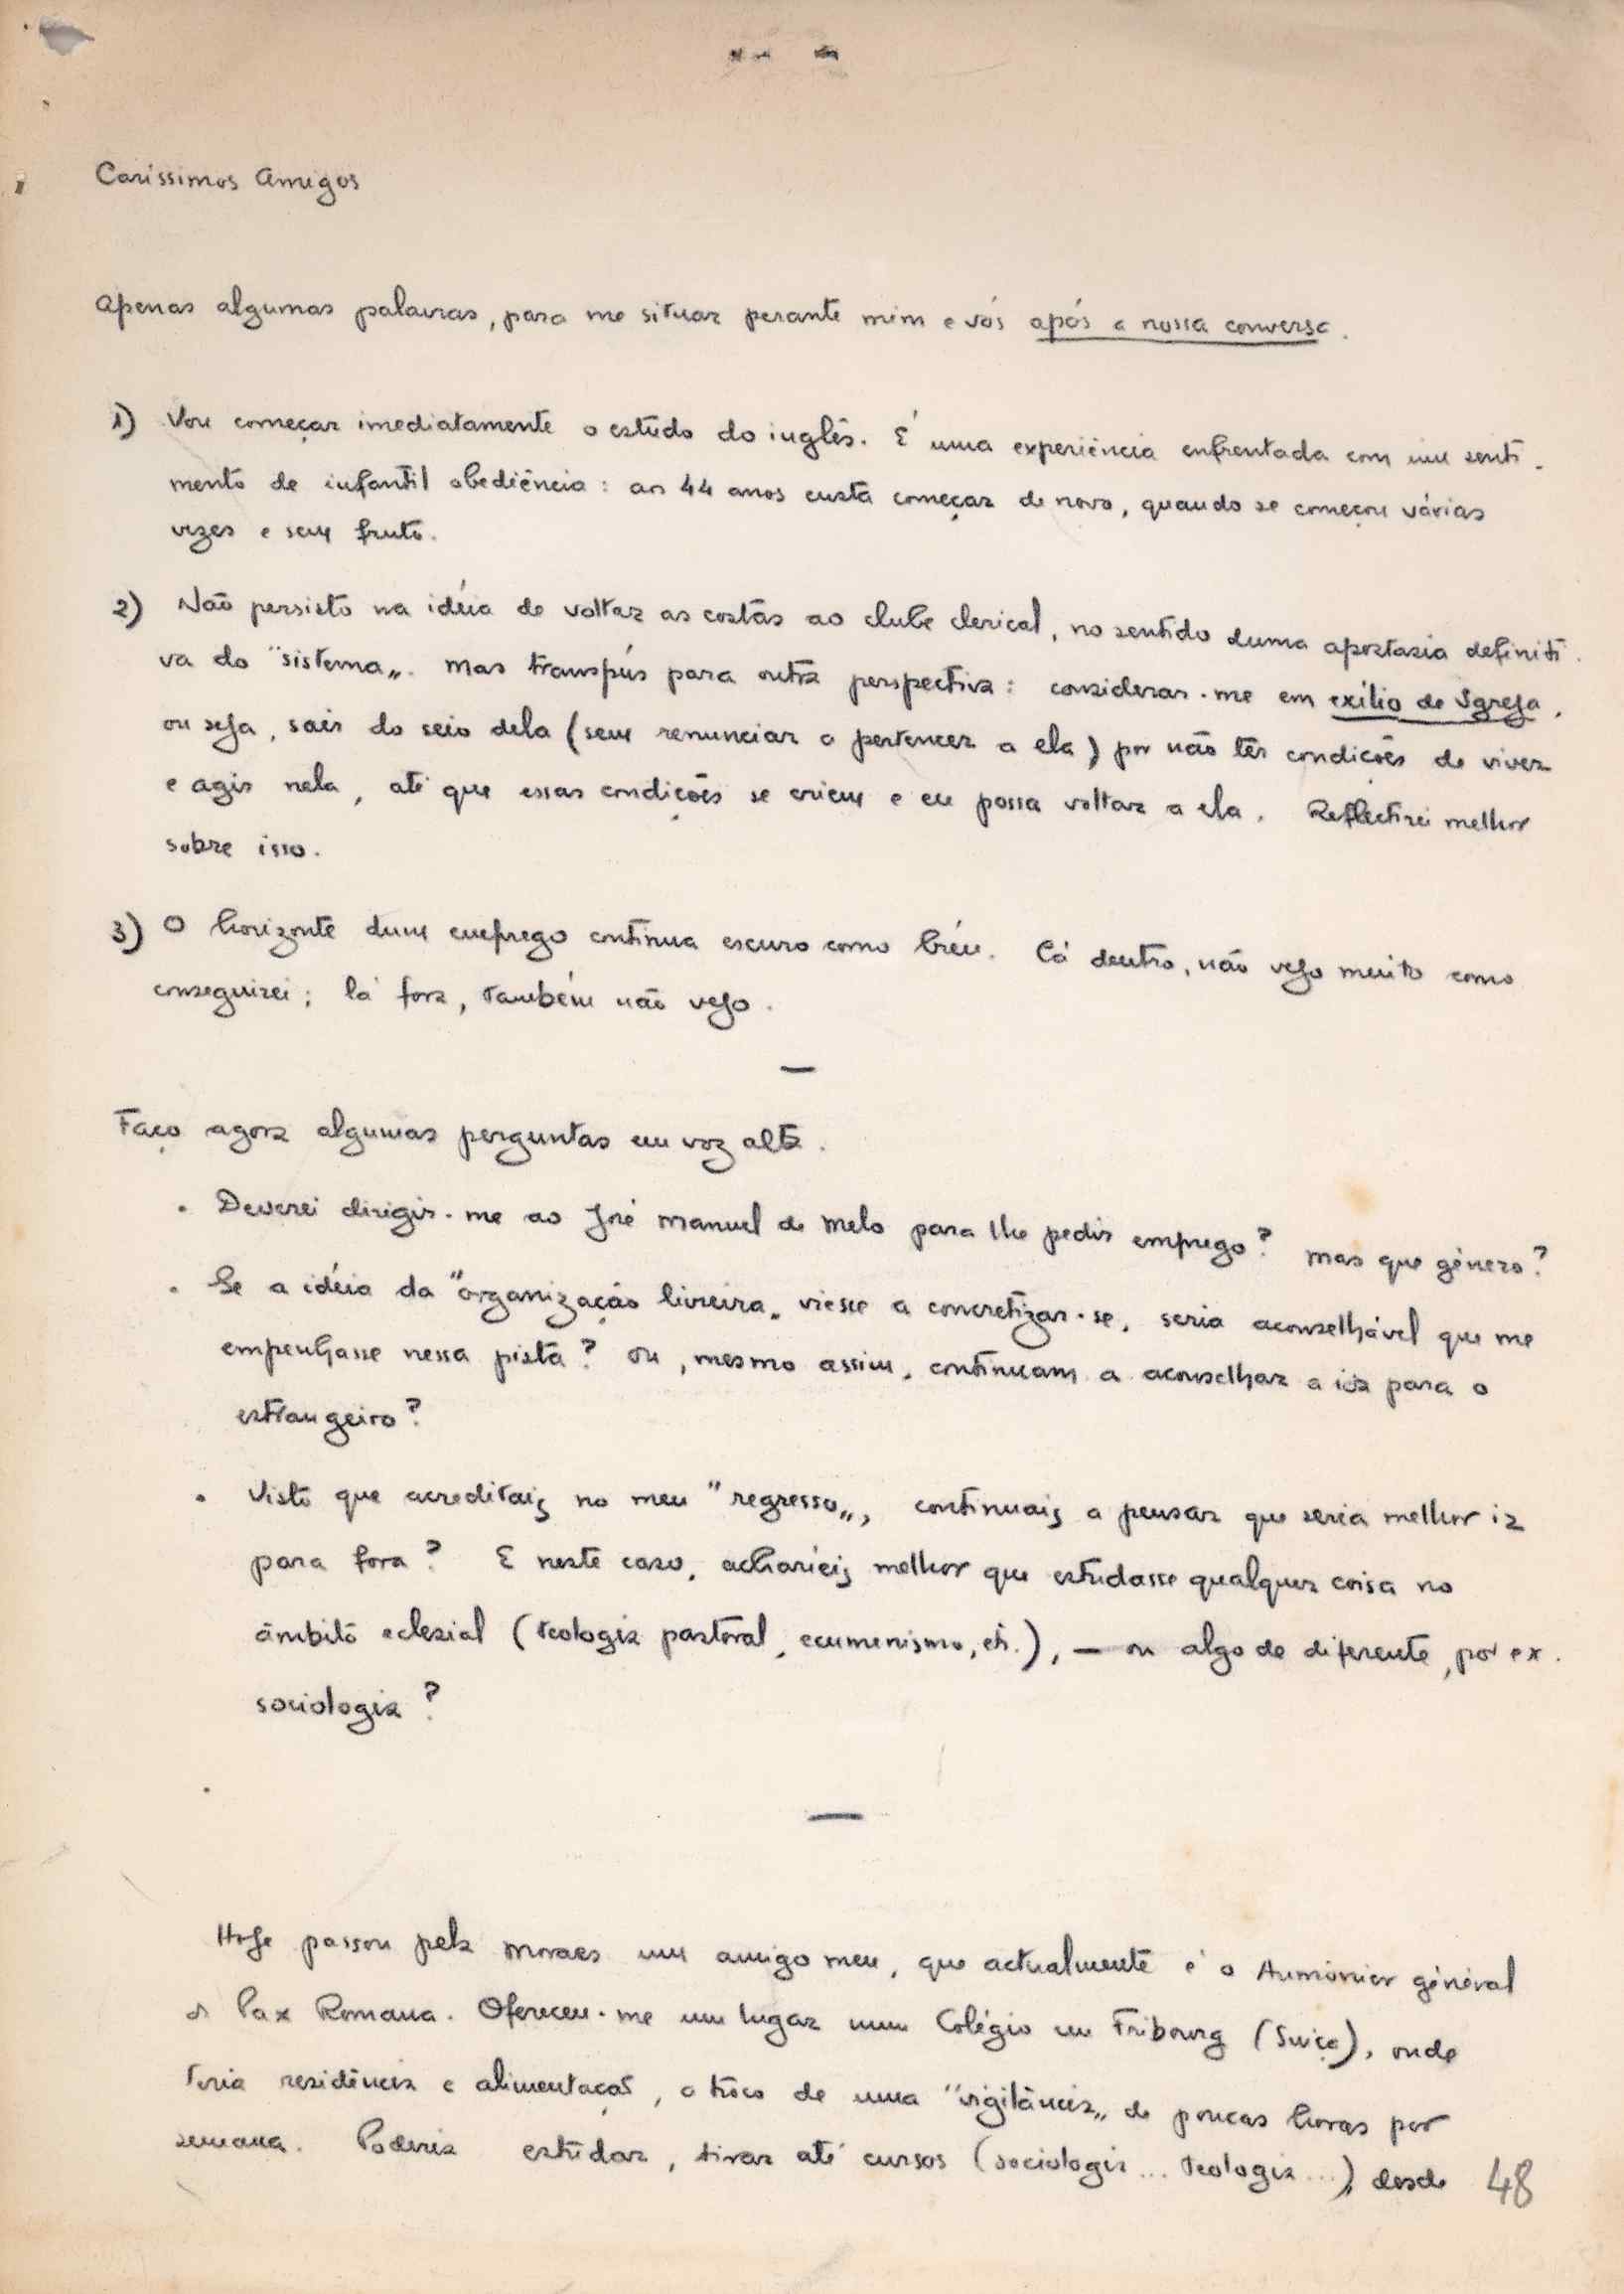 Caríssimos Amigos
Apenas algumas palavras, para me situar perante mim e vós após a nossa conversa.
1) Vou começar imediatamente o estudo do inglês. É uma experiência enfrentada com um senti-
mento de infantil obediência: aos 44 anos custa começar de novo, quando se começou várias
vezes e sem fruto.
2) Não persisto na idéia de voltar as costas ao clube clerical, no sentido duma apostasia definiti-
va do "sistema". Mas transpús para outra perspectiva: considerar-me em exílio da Igreja,
ou seja, sair do seio dela (sem renunciar a pertencer a ela) por não ter condições de viver
e agir nela, até que essas condições se criem e eu possa voltar a ela. Reflectirei melhor
sobre isso.
3) O horizonte dum emprego continua escuro como bréu. Cá dentro, não vejo muito como
conseguirei; lá fora, também não vejo.
—
Faço agora algumas perguntas em voz alta.
. Deverei dirigir-me ao José Manuel de Melo para lhe pedir emprego? Mas que género?
. Se a idéia da "organização livreira" viesse a concretizar-se, seria aconselhável que me
empenhasse nessa pista? Ou, mesmo assim, continuam a aconselhar a ida para o
estrangeiro?
. Visto que acreditais no meu "regresso", continuais a pensar que seria melhor ir
para fora? E neste caso, acharíeis melhor que estudasse qualquer coisa no
âmbito eclesial (teologia pastoral, ecumenismo, etc.), — ou algo de diferente, por ex.
sociologia?
—
Hoje passou pela Moraes um amigo meu, que actualmente é o Aumônier général
da Pax Romana. Ofereceu-me um lugar num Colégio em Fribourg (Suiça), onde
teria residência e alimentação, a trôco de uma "vigilância" de poucas horas por
semana. Poderia estudar, tirar até cursos (sociologia... teologia...), desde
48